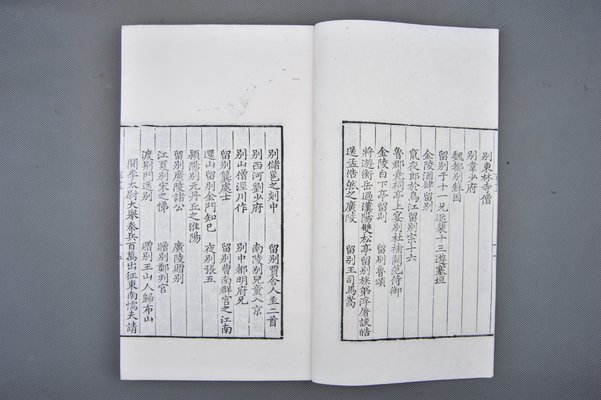 別東林寺僧
別韋少府
魏都別蘇因
留別于十一兄逖裴十三遊塞垣
金陵酒肆留別
竄夜郎於烏江留別宗十六
魯郡堯祠亭上宴別杜補闕范侍御
金陵白下亭留別 別魯頌
將遊衡岳過漢陽雙松亭留別族弟浮屠談皓
送孟浩然之廣陵 留別王司馬嵩
別儲邕之剡中 留別賈舍人至二首
別西河劉少府 南陵別兒童入京
別山僧涇川作 別中都明府兄
留別龔處士 留別曹南群官之江南
還山留別金門知己 夜別張五
潁陽別元丹丘之淮陽
留別廣陵諸公 廣陵贈別
江夏別宋之悌 贈別鄭判官
渡荊門送別 贈別王山人歸布山
聞李太尉大舉秦兵百萬出征東南懦夫請